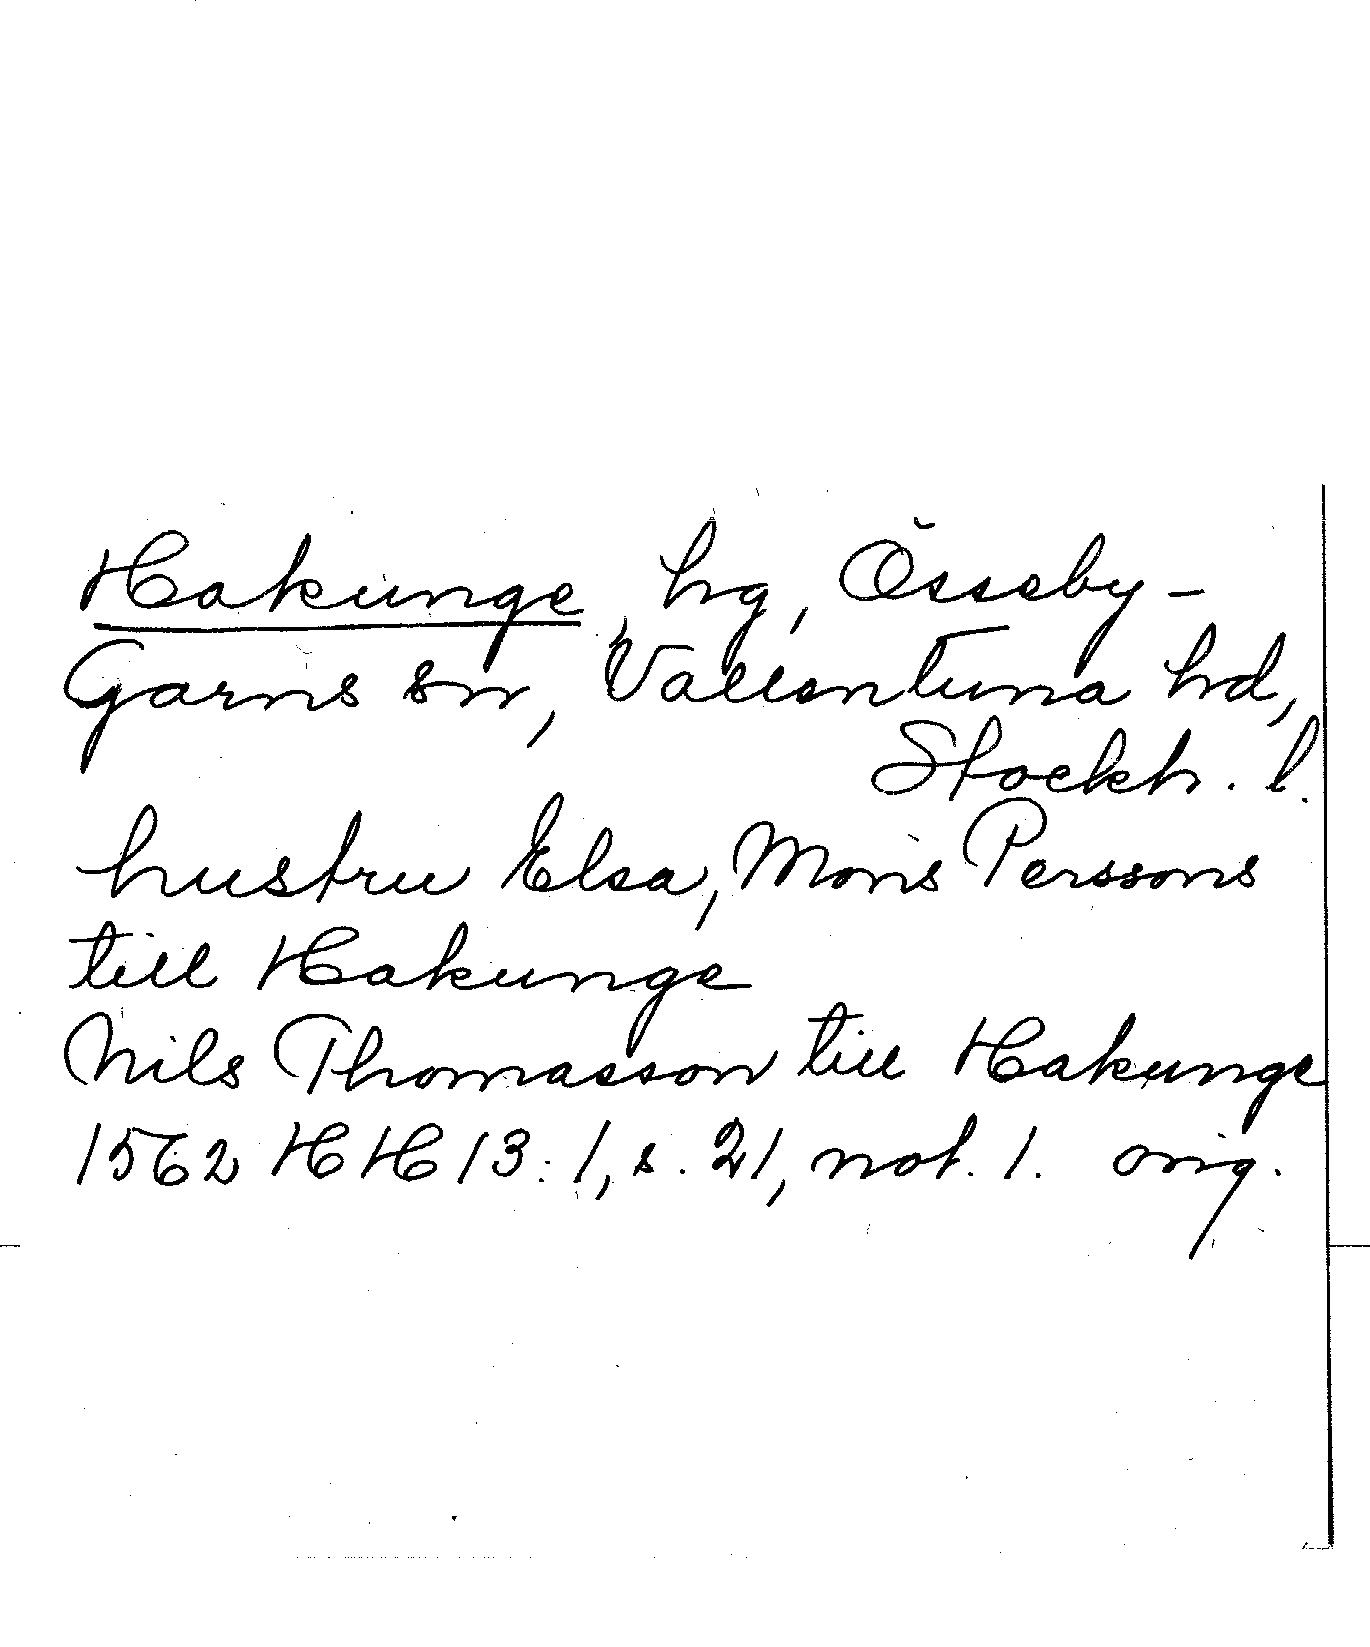 Hakunge, hg, Össeby-
Garns sn, Vallentuna hd,
Stockh. l.
hustru Elsa, Mons Perssons
till Hakunge
Nils Thomasson till Hakunge
1562 HH 13:1, s. 21, not. 1. orig.